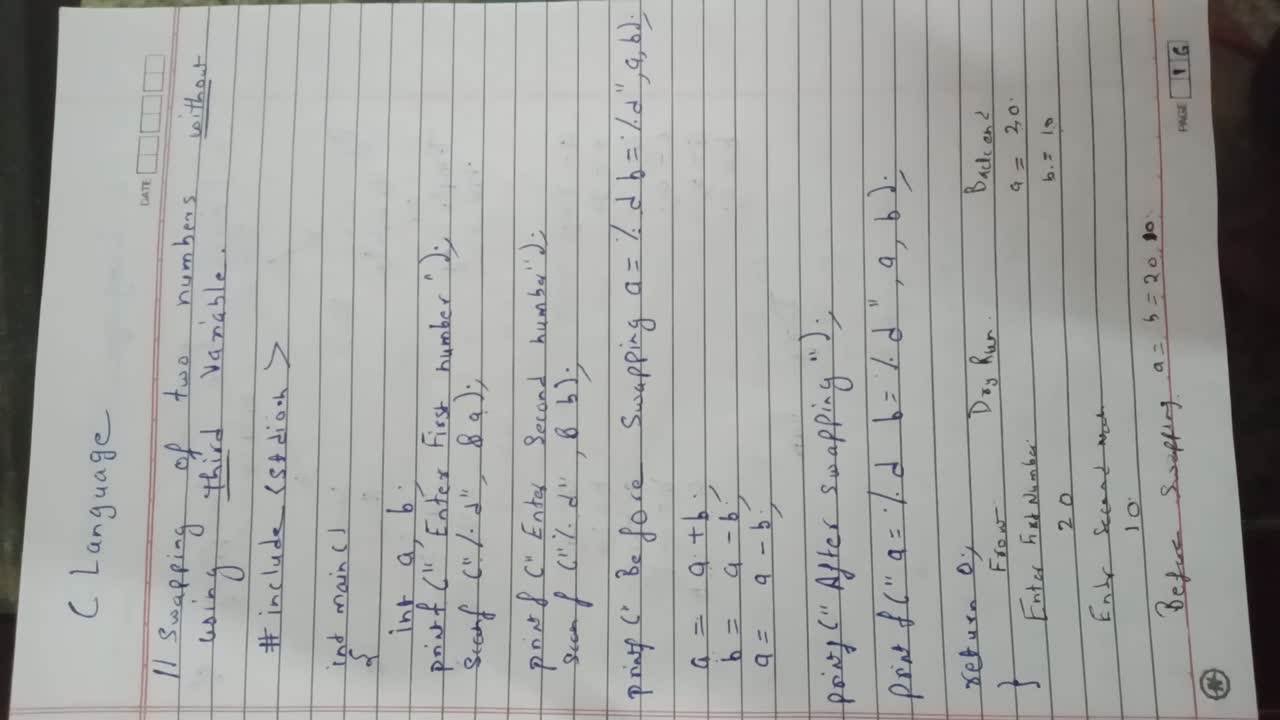 C Language
DATE
// Swapping of two numbers without
using third variable.
# include <stdioh>
int main()
{
int a, b;
printf(" Enter First number");
scanf ("%d", &a);
printf("Enter Second number");
scanf ("%d", &b);
printf(" Before Swapping a=%d b=%d", a,b);
a = a + b;
b = a - b;
a = a - b;
printf(" After swapping");
printf(" a=%d b=%d", a, b);
return 0;
}
Dry Run.
Front Backend
Enter first Number a = 20
20 b = 10
Enter Second
10
Before Swapping a= b=20,10
PAGE 1 6